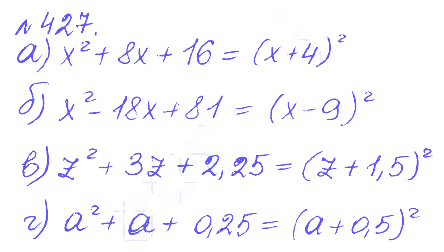 №427.
а) x² + 8x + 16 = (x+4)²
б) x² - 18x + 81 = (x - 9)²
в) z² + 3z + 2,25 = (z + 1,5)²
г) a² + a + 0,25 = (a + 0,5)²